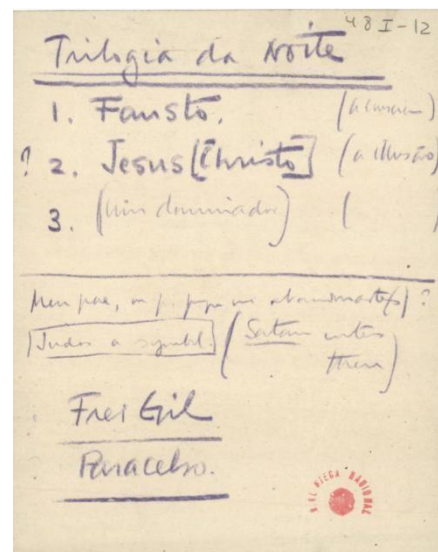 48 I-12
Trilogia da Noite
1. Fausto.
? 2. Jesus [Christo] (a illusão)
3. (um dominador) ( )
Meu pae, abandonaste(s)?
Judas a symbol. (Satan enters
them)
Frei Gil
Paracelso.
BIBLIOTECA NACIONAL